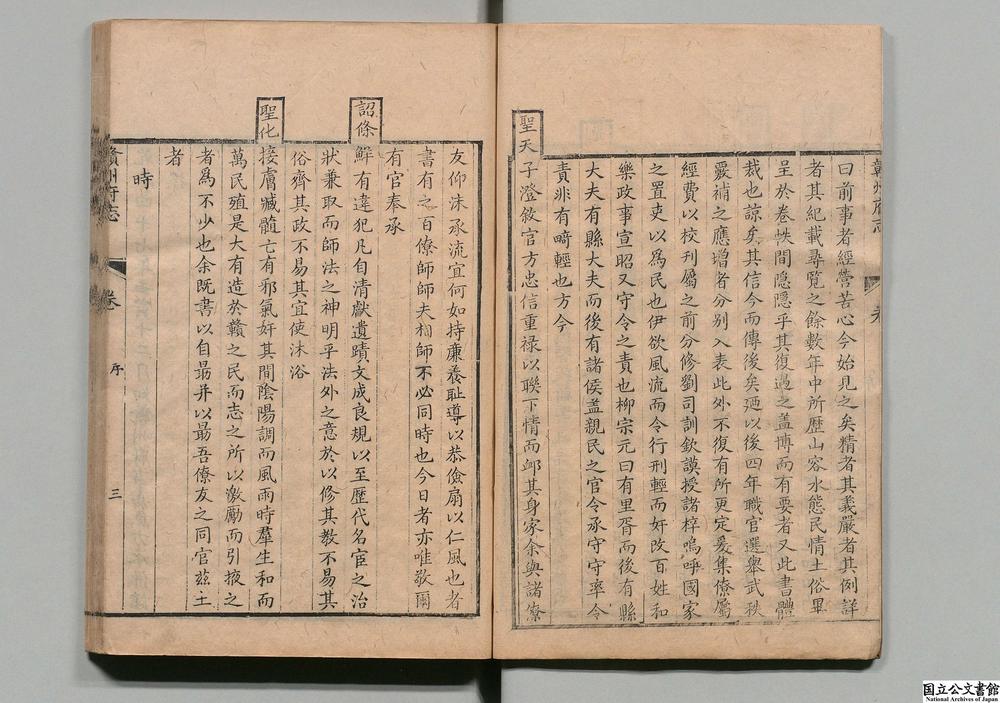 贛州府志
曰前事者經營苦心今始見之矣精者其義嚴者其例詳
者其紀載尋覽之餘數年中所歷山容水態民情土俗畢
呈於卷帙間隱隱乎其復遇之蓋博而有要者又此書體
裁也諒矣其信今而傳後矣廼以後四年職官選舉武秩
覈補之應增者分别入表此外不復有所更定爰集僚屬
經費以校刊屬之前分修劉司訓欽謨授諸梓嗚呼國家
之置吏以爲民也伊欲風流而令行刑輕而奸改百姓和
樂政事宣昭又守令之責也柳宗元曰有里胥而後有縣
大夫有縣大夫而後有諸侯蓋親民之官令承守守率令
責非有畸輕也方今
聖天子澄敘官方忠信重祿以聯下情而卹其身家余與諸僚
友仰沐承流宜何如持廉養恥導以恭儉扇以仁風也者
書有之百僚師師夫相師不必同時也今日者亦唯敬爾
有官奉承
詔條鮮有違犯凡自清獻遺蹟文成良規以至歷代名宦之治
狀兼取而師法之神明乎法外之意於以修其教不易其
俗齊其政不易其宜使沐浴
聖化接膚臧髓亡有邪氣奸其間陰陽調而風雨時羣生和而
萬民殖是大有造於贛之民而志之所以激勵而引掖之
者爲不少也余既書以自朂并以朂吾僚友之同官茲土
者
時
贛州府志
卷
序
三
国立公文書館
National Archives of Japan